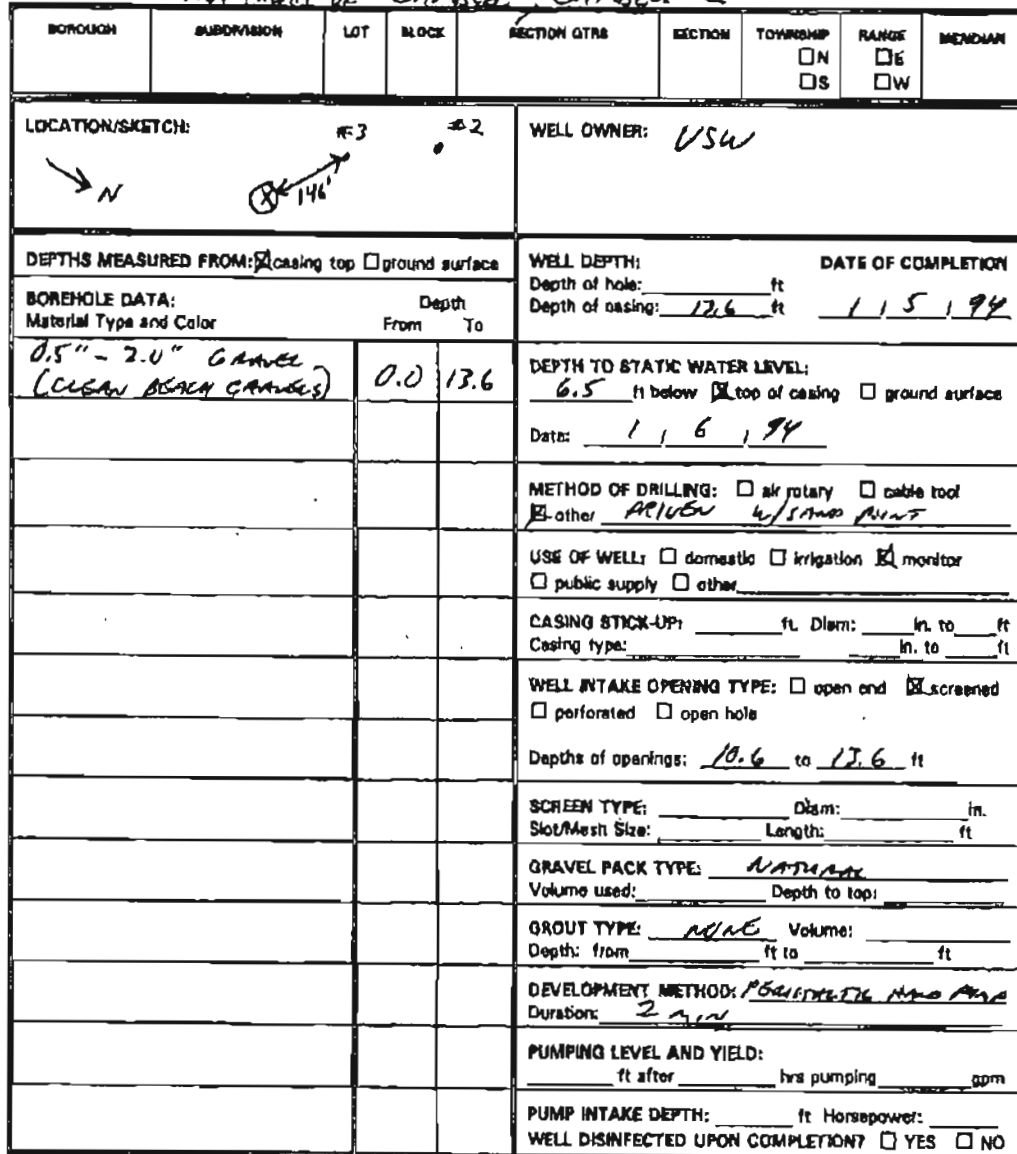 BOROUGH SUBDIVISION LOT BLOCK SECTION QTRS SECTION TOWNSHIP RANGE MERIDIAN
☐N ☐E
☐S ☐W
LOCATION/SKETCH:
#3 #2
N 146'
WELL OWNER: USW
DEPTHS MEASURED FROM: ☒casing top ☐ground surface
BOREHOLE DATA: Depth
Material Type and Color From To
0.5" - 2.0" GRAVEL
(CLEAN BEACH GRAVELS) 0.0 13.6
WELL DEPTH: DATE OF COMPLETION
Depth of hole: ft
Depth of casing: 13.6 ft 1 / 5 / 94
DEPTH TO STATIC WATER LEVEL:
6.5 ft below ☒ top of casing ☐ ground surface
Date: 1 / 6 / 94
METHOD OF DRILLING: ☐ air rotary ☐ cable tool
☒ other DRIVEN W/SAND POINT
USE OF WELL: ☐ domestic ☐ irrigation ☒ monitor
☐ public supply ☐ other
CASING STICK-UP: ft. Diam: in. to ft
Casing type: in. to ft
WELL INTAKE OPENING TYPE: ☐ open end ☒ screened
☐ perforated ☐ open hole
Depths of openings: 10.6 to 13.6 ft
SCREEN TYPE: Diam: in.
Slot/Mesh Size: Length: ft
GRAVEL PACK TYPE: NATURAL
Volume used: Depth to top:
GROUT TYPE: NONE Volume:
Depth: from ft to ft
DEVELOPMENT METHOD: PERISTALTIC HAND PUMP
Duration: 2 MIN
PUMPING LEVEL AND YIELD:
ft after hrs pumping gpm
PUMP INTAKE DEPTH: ft Horsepower:
WELL DISINFECTED UPON COMPLETION? ☐ YES ☐ NO